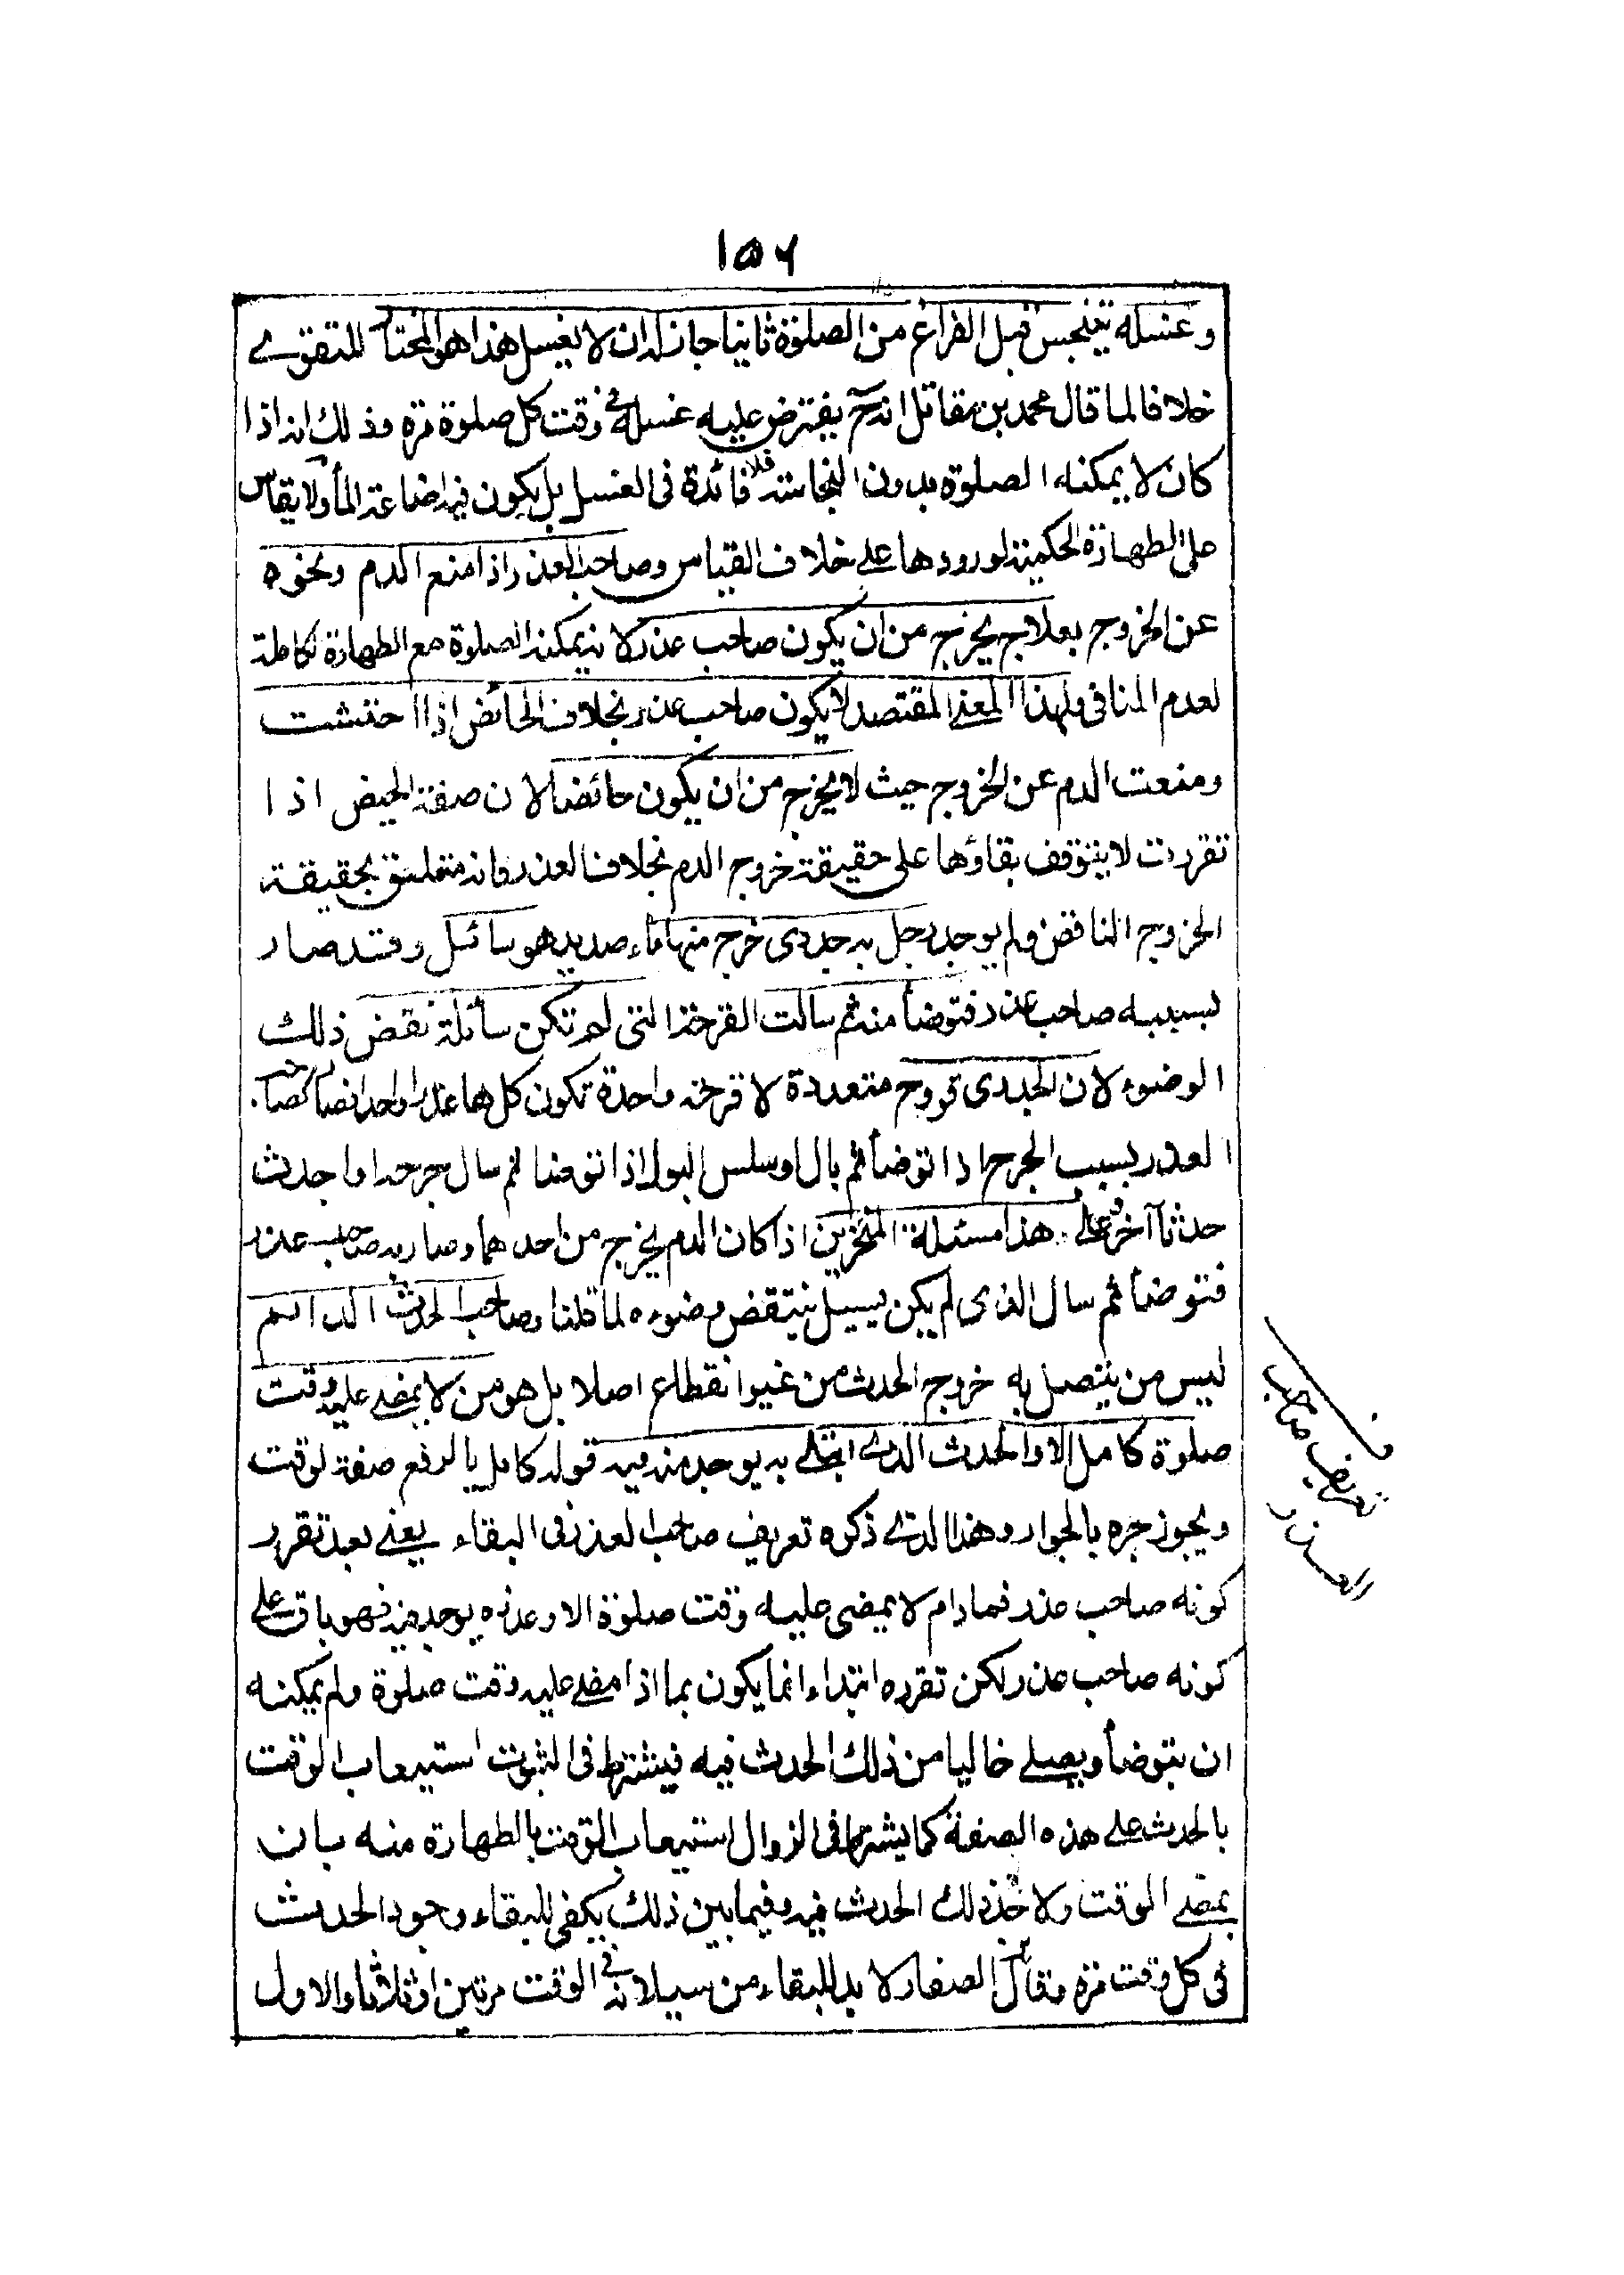 ١٥٦
و غسله يتنجس قبل الفراغ من الصلوة ثانيا جاز له ان لا يغسل هذا هو المختار للفتوى
خلافا لما قال محمد بن مقاتل انه ح يفترض عليه غسله فى وقت كل صلوة مرة وذلك انه اذا
كان لا يمكنه الصلوة بدون النجاسة فلا فائدة فى الغسل بل يكون فيه اضاعة الماء ولا يقاس
على الطهارة الحكمية لورودها على خلاف القياس وصاحب العذر اذا منع الدم ونحوه
عن الخروج بعلاج يخرج من ان يكون صاحب عذر لانه يمكنه الصلوة مع الطهارة الكاملة
لعدم المنافى ولهذا المعنى المفتصد لا يكون صاحب عذر بخلاف الحائض اذا احتشت
ومنعت الدم عن الخروج حيث لا يخرج من ان يكون حائضا لان صفة الحيض اذا
تقررت لا يتوقف بقاؤها على حقيقة خروج الدم بخلاف العذر فانه متعلق بحقيقة
الخروج الناقض ولم يوجد رجل به جدرى خرج منها ماء صديد هو سائل وقد صار
بسببه صاحب عذر فتوضأ منه ثم سالت القرحة التى لم تكن سائلة نقض ذلك
الوضوء لان الجدرى قروح متعددة لا قرحة واحدة تكون كلها عذرا واحدا فصار كصاحب
العذر بسبب الجرح اذا توضأ ثم بال او سلس البول اذا توضأ ثم سال جرحه او احدث
حدثا آخر وعلى هذا مسئلة المنخرين اذا كان الدم يخرج من احدهما وصار به صاحب عذر
فتوضأ ثم سال الذى لم يكن يسيل ينتقض وضوءه لما قلنا وصاحب الحدث الدائم
ليس من يتصل به خروج الحدث من غير انقطاع اصلا بل هو من لا يمضى عليه وقت
صلوة كامل الا والحدث الذى ابتلى به يوجد منه فيه قوله كامل بالرفع صفة لوقت
ويجوز جره بالجوار وهذا الذى ذكره تعريف صاحب العذر فى البقاء يعنى بعد تقرر
كونه صاحب عذر فما دام لا يمضى عليه وقت صلوة الا وعذره يوجد فيه فهو باق على
كونه صاحب عذر لكن تقرره ابتداء انما يكون بما اذا مضى عليه وقت صلوة ولم يمكنه
ان يتوضأ ويصلى خاليا من ذلك الحدث فيه فيشترط فى الثبوت استيعاب الوقت
بالحدث على هذه الصفة كما يشترط فى الزوال استيعاب الوقت بالطهارة منه بان
يمضى الوقت ولا ذلك الحدث فيه وفيما بين ذلك يكفى للبقاء وجود الحدث
فى كل وقت مرة وقال الصفار لا بد للبقاء من سيلانه فى الوقت مرتين او ثلاثا والاول
تعريف صاحب
العذر